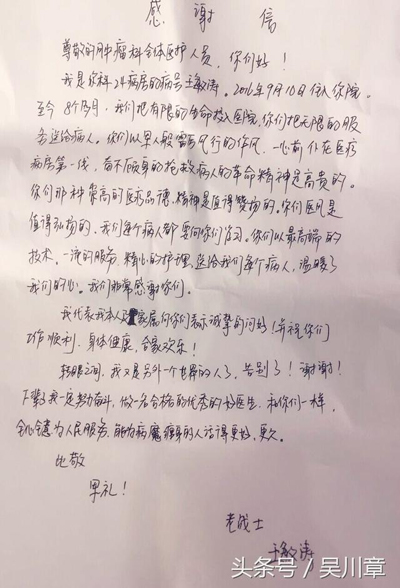 感谢信
尊敬的肿瘤科全体医护人员,你们好!
我是你科24病房的病号于敏涛。2016年9月10日住入你院。
至今8个多月,我们把有限的生命投入医院,你们把无限的服
务送给病人。你们以军人般雷厉风行的作风,一心扑在医疗
病房第一线,奋不顾身的抢救病人的革命精神是高贵的。
你们那种崇高的医疗品德,精神是值得赞扬的。你们医风是
值得弘扬的,我们每个病人都要向你们学习。你们以最高端的
技术,一流的服务,精心的护理,送给我们每个病人,温暖了
我们的心。我们非常感谢你们。
我代表我本人及家属向你们表示诚挚的问好!并祝你们
工作顺利,身体健康,合家欢乐!
转眼之间,我又是另外一个世界的人了,告别了!谢谢!
下辈子我一定努力奋斗,做一名合格的优秀的好医生,和你们一样,
全心全意为人民服务,能为病魔缠身的人活得更好,更久。
此敬
军礼!
老战士
于敏涛
头条号/吴川章